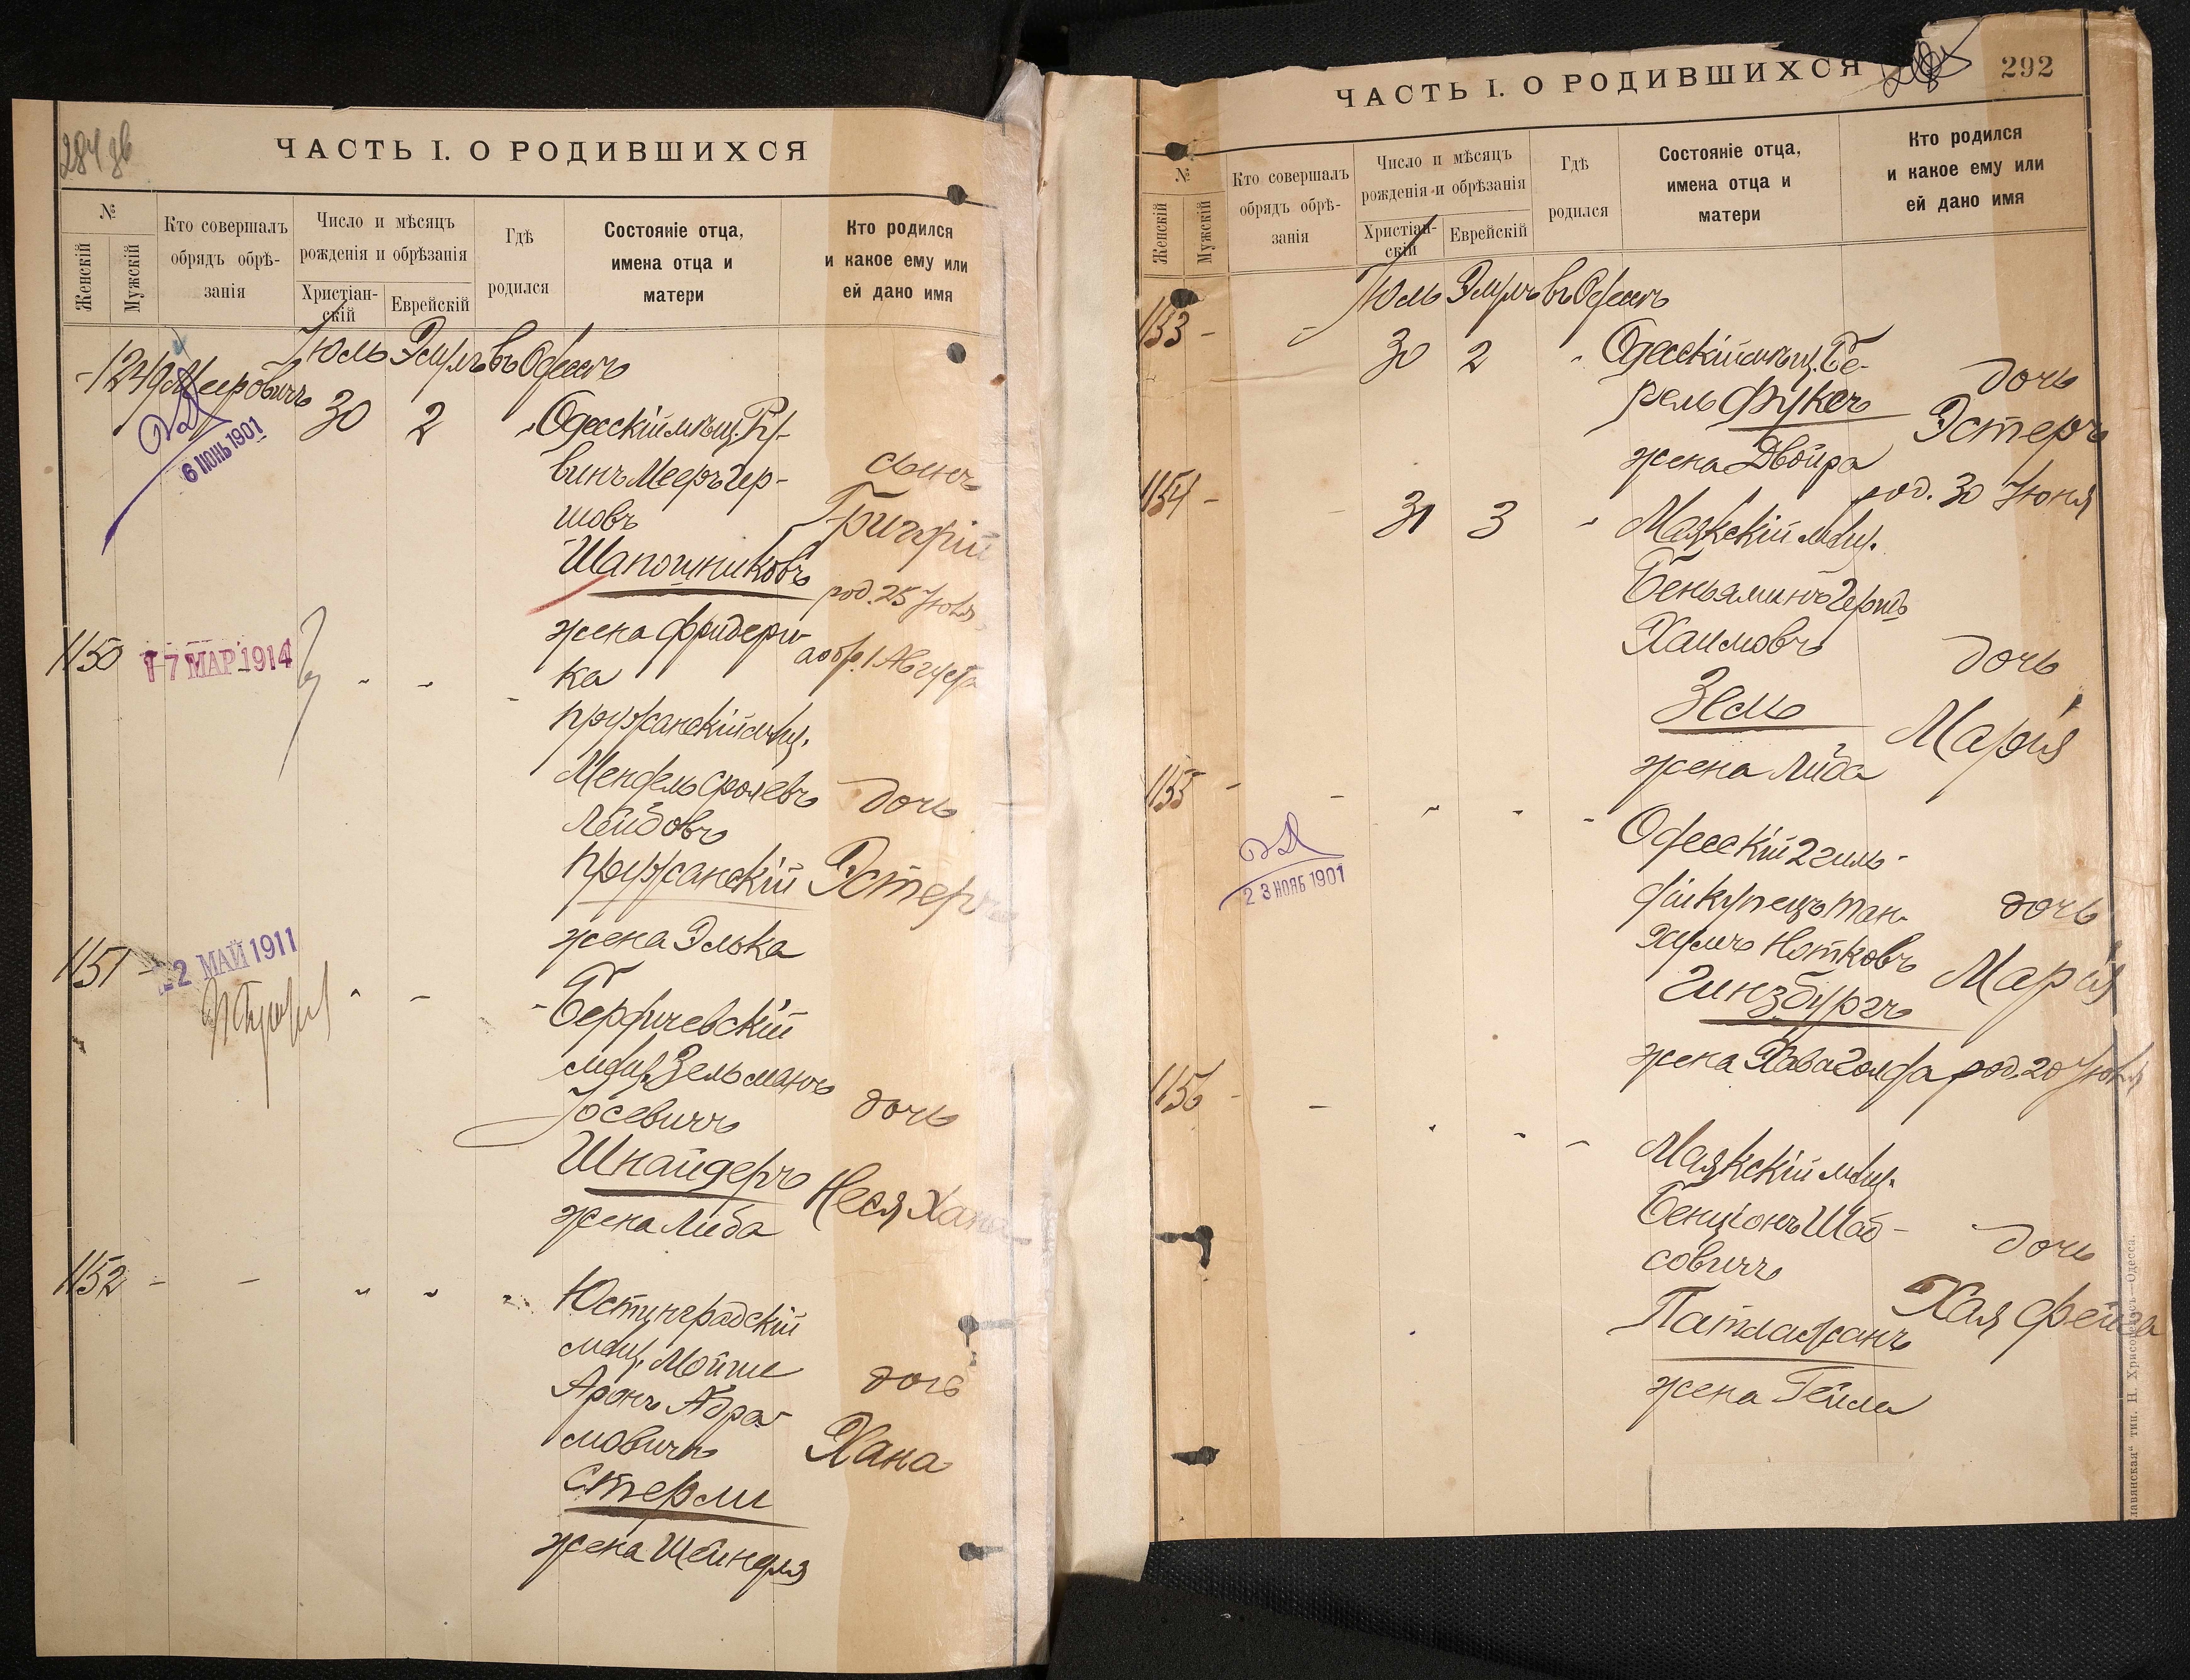 284 об
ЧАСТЬ I. О РОДИВШИХСЯ
№
Женскій
Мужскій
Кто совершалъ
обрядъ обрѣ-
занія
Число и мѣсяцъ
рожденія и обрѣзанія
Христіан-
скій
Еврейскій
Гдѣ
родился
Состояніе отца,
имена отца и
матери
Кто родился
и какое ему или
ей дано имя
Іюль Элулъ въ Одессѣ
- 1249 Мееровичъ 30 2 " Одесскій мѣщ. Ру-
6 ИЮНЬ 1901
винъ Мееръ Гер-
шовъ
Шапошниковъ
жена Фридери-
ка
сынъ
Григорій
род. 25 Іюля
а обр. 1 Августа
1150 17 МАР 1914 " " "
Пружанскій мѣщ.
Мендель Сролевъ
Лейбовъ
Пружанскій
жена Элька
дочь
Эстеръ
1151 - 22 МАЙ 1911 " - -
Бердичевскій
мѣщ. Зельманъ
Іосевичъ
Шнайдеръ
жена Либа
дочь
Неся Хана
1152 - - " " "
Юстинградскій
мѣщ. Мойше
Аронъ Абра-
мовичъ
Стерли
жена Шейндля
дочь
Хана
292
ЧАСТЬ I. О РОДИВШИХСЯ
№
Женскій
Мужскій
Кто совершалъ
обрядъ обрѣ-
занія
Число и мѣсяцъ
рожденія и обрѣзанія
Христіан-
скій
Еврейскій
Гдѣ
родился
Состояніе отца,
имена отца и
матери
Кто родился
и какое ему или
ей дано имя
Іюль Элулъ въ Одессѣ
1153 - - 30 2 " Одесскій мѣщ. Бе-
рель Фуксъ
жена Двойра
дочь
Эстеръ
род. 30 Іюня
1154 - - 31 3 " Маякскій мѣщ.
Беньяминъ Гершъ
Хаимовъ
Зель
жена Либа
дочь
Марія
1155 - - " - -
23 НОЯБ 1901
Одесскій 2 гиль-
діи купецъ Тан-
хумъ Нотковъ
Гинзбургъ
жена Хава Голда
дочь
Марія
род. 20 Іюля
1156 - - " - -
Маякскій мѣщ.
Бенціонъ Шаб-
совичъ
Патлажанъ
жена Гейли
дочь
Хая Фейга
лавянская" тип. Н. Хрисогелосъ—Одесса.